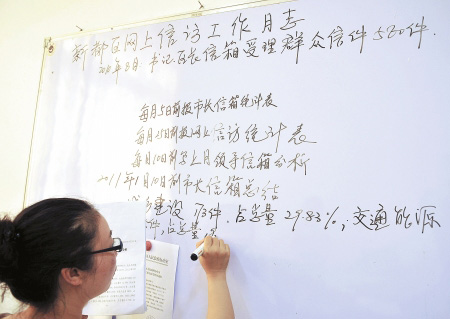 新都区网上信访工作月志
书记区长信箱受理群众信件580件.
每月5日前报市长信箱统计表
每月25日前报网上信访统计表
每月10日前写上月领导信箱分析
2011年1月10日前市长信箱总结
建设 173件. 占总量29.83%; 交通能源
件, 占总量